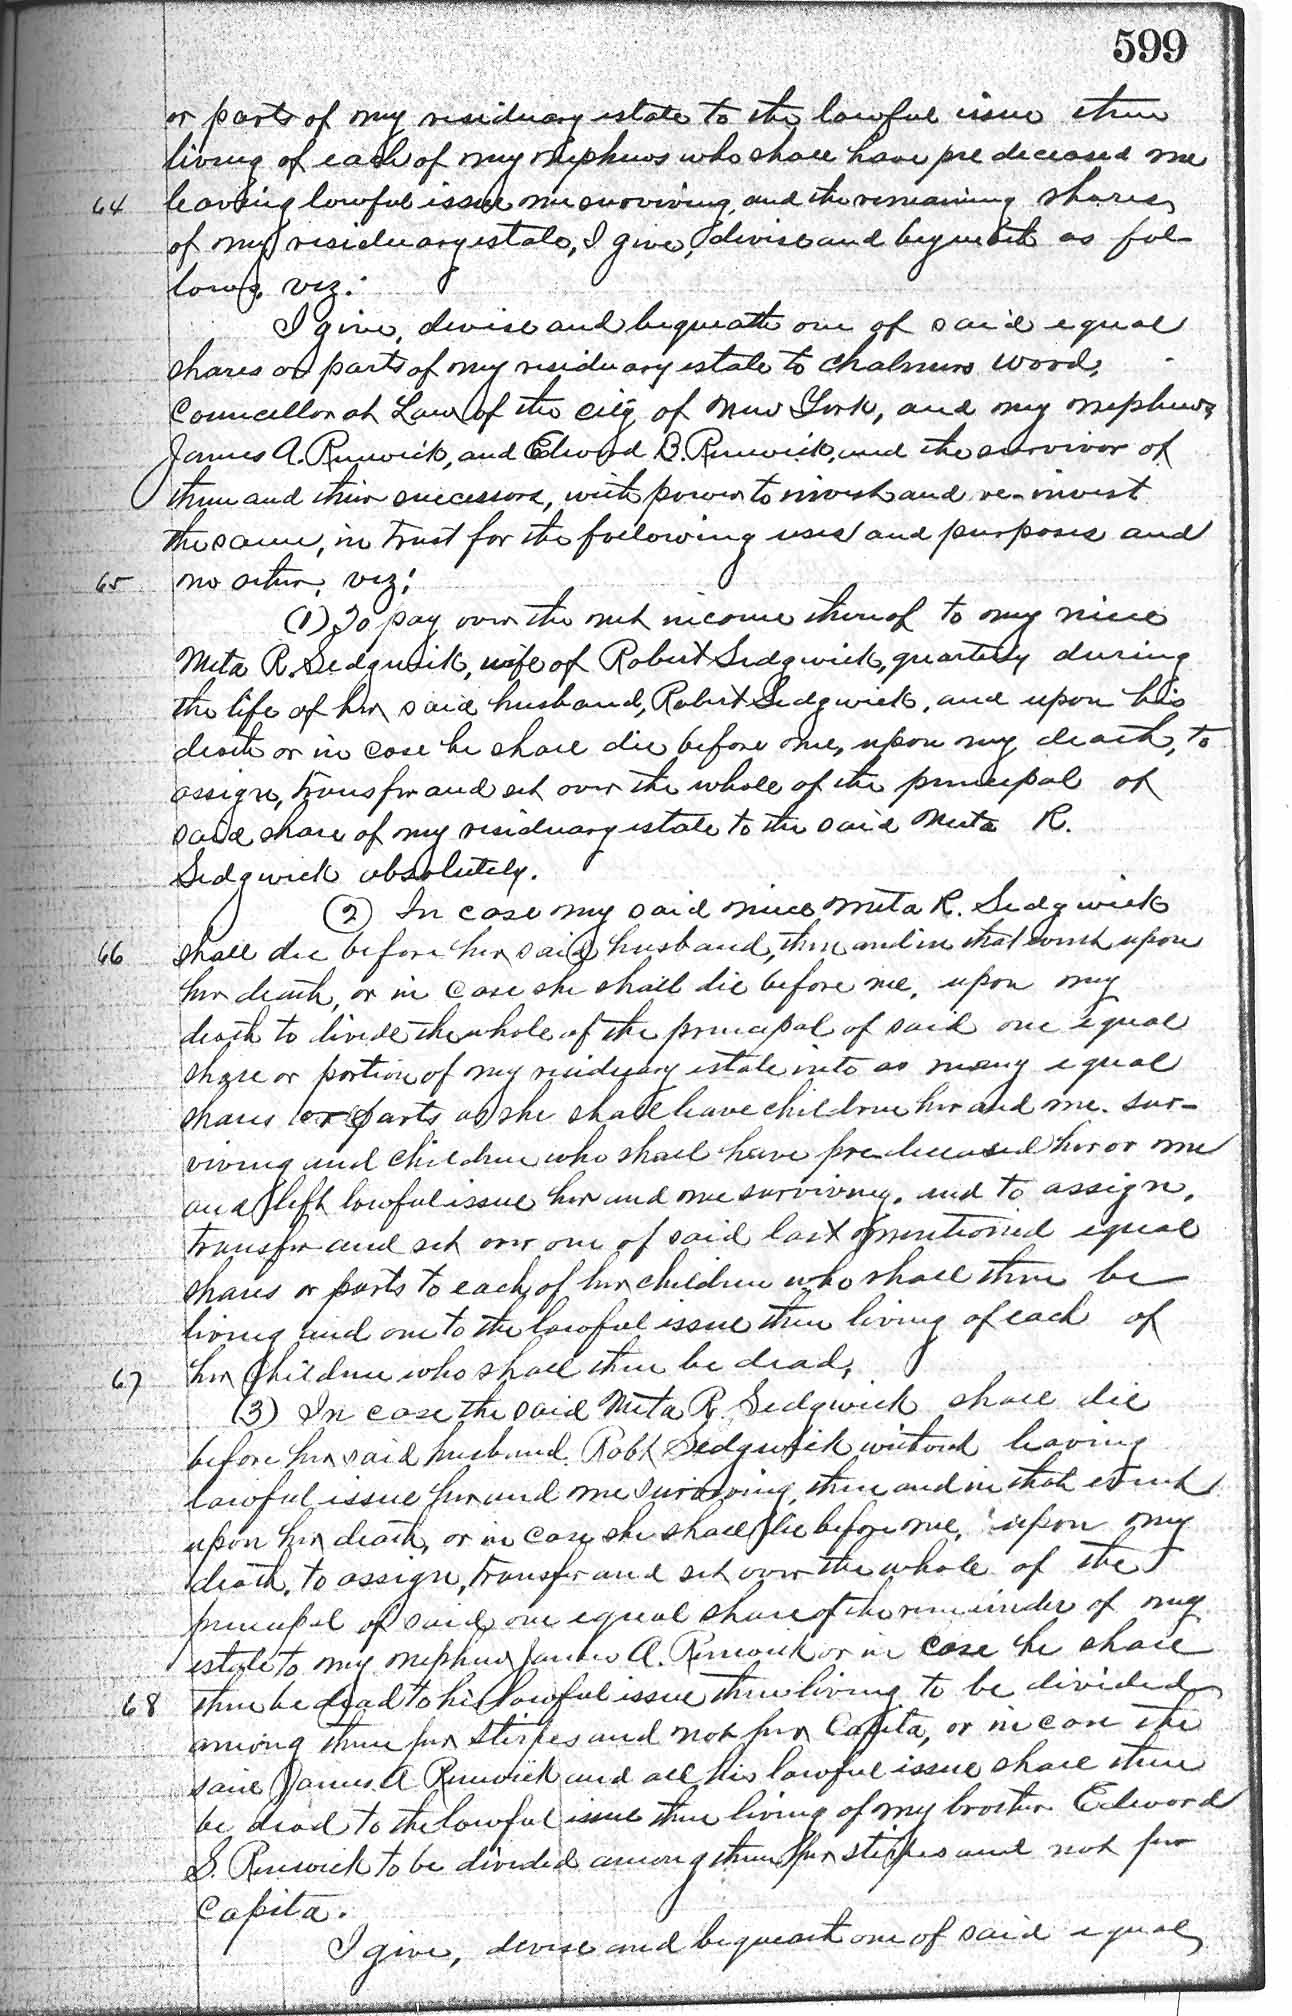 599
or parts of my residuary estate to the lawful issue then
living of each of my nephews who shall have predeceased me
64 leaving lawful issue me surviving, and the remaining shares
of my residuary estate, I give, devise and bequeath as fol-
lows, viz:
I give, devise and bequeath one of said equal
shares or parts of my residuary estate to Chalmers Wood,
Councellor at Law of the city of New York, and my nephews
James A. Renwick, and Edward B. Renwick, and the survivor of
them and their successors, with power to invest and re-invest
the same, in trust for the following uses and purposes and
65 no other, viz:
(1) To pay over the net income thereof to my niece
Meta R. Sedgwick, wife of Robert Sedgwick, quarterly during
the life of her said husband, Robert Sedgwick, and upon his
death or in case he shall die before me, upon my death, to
assign, transfer and set over the whole of the principal of
said share of my residuary estate to the said Meta R.
Sedgwick absolutely.
(2) In case my said niece Meta R. Sedgwick
66 shall die before her said husband, then and in that event upon
her death, or in case she shall die before me, upon my
death to divide the whole of the principal of said one equal
share or portion of my residuary estate into as many equal
shares or parts as she shall leave children her and me sur-
viving and children who shall have pre-deceased her or me
and left lawful issue her and me surviving, and to assign,
transfer and set over one of said last mentioned equal
shares or parts to each of her children who shall then be
living and one to the lawful issue then living of each of
67 her children who shall then be dead.
(3) In case the said Meta R. Sedgwick shall die
before her said husband Robt Sedgwick without leaving
lawful issue her and me surviving, then and in that event
upon her death, or in case she shall die before me, upon my
death, to assign, transfer and set over the whole of the
principal of said one equal share of the remainder of my
estate to my nephew James A. Renwick or in case he shall
68 then be dead to his lawful issue then living to be divided
among them per stirpes and not per capita, or in case the
said James A Renwick and all his lawful issue shall then
be dead to the lawful issue then living of my brother Edward
S. Renwick to be divided among them per stirpes and not per
capita.
I give, devise and bequeath one of said equal